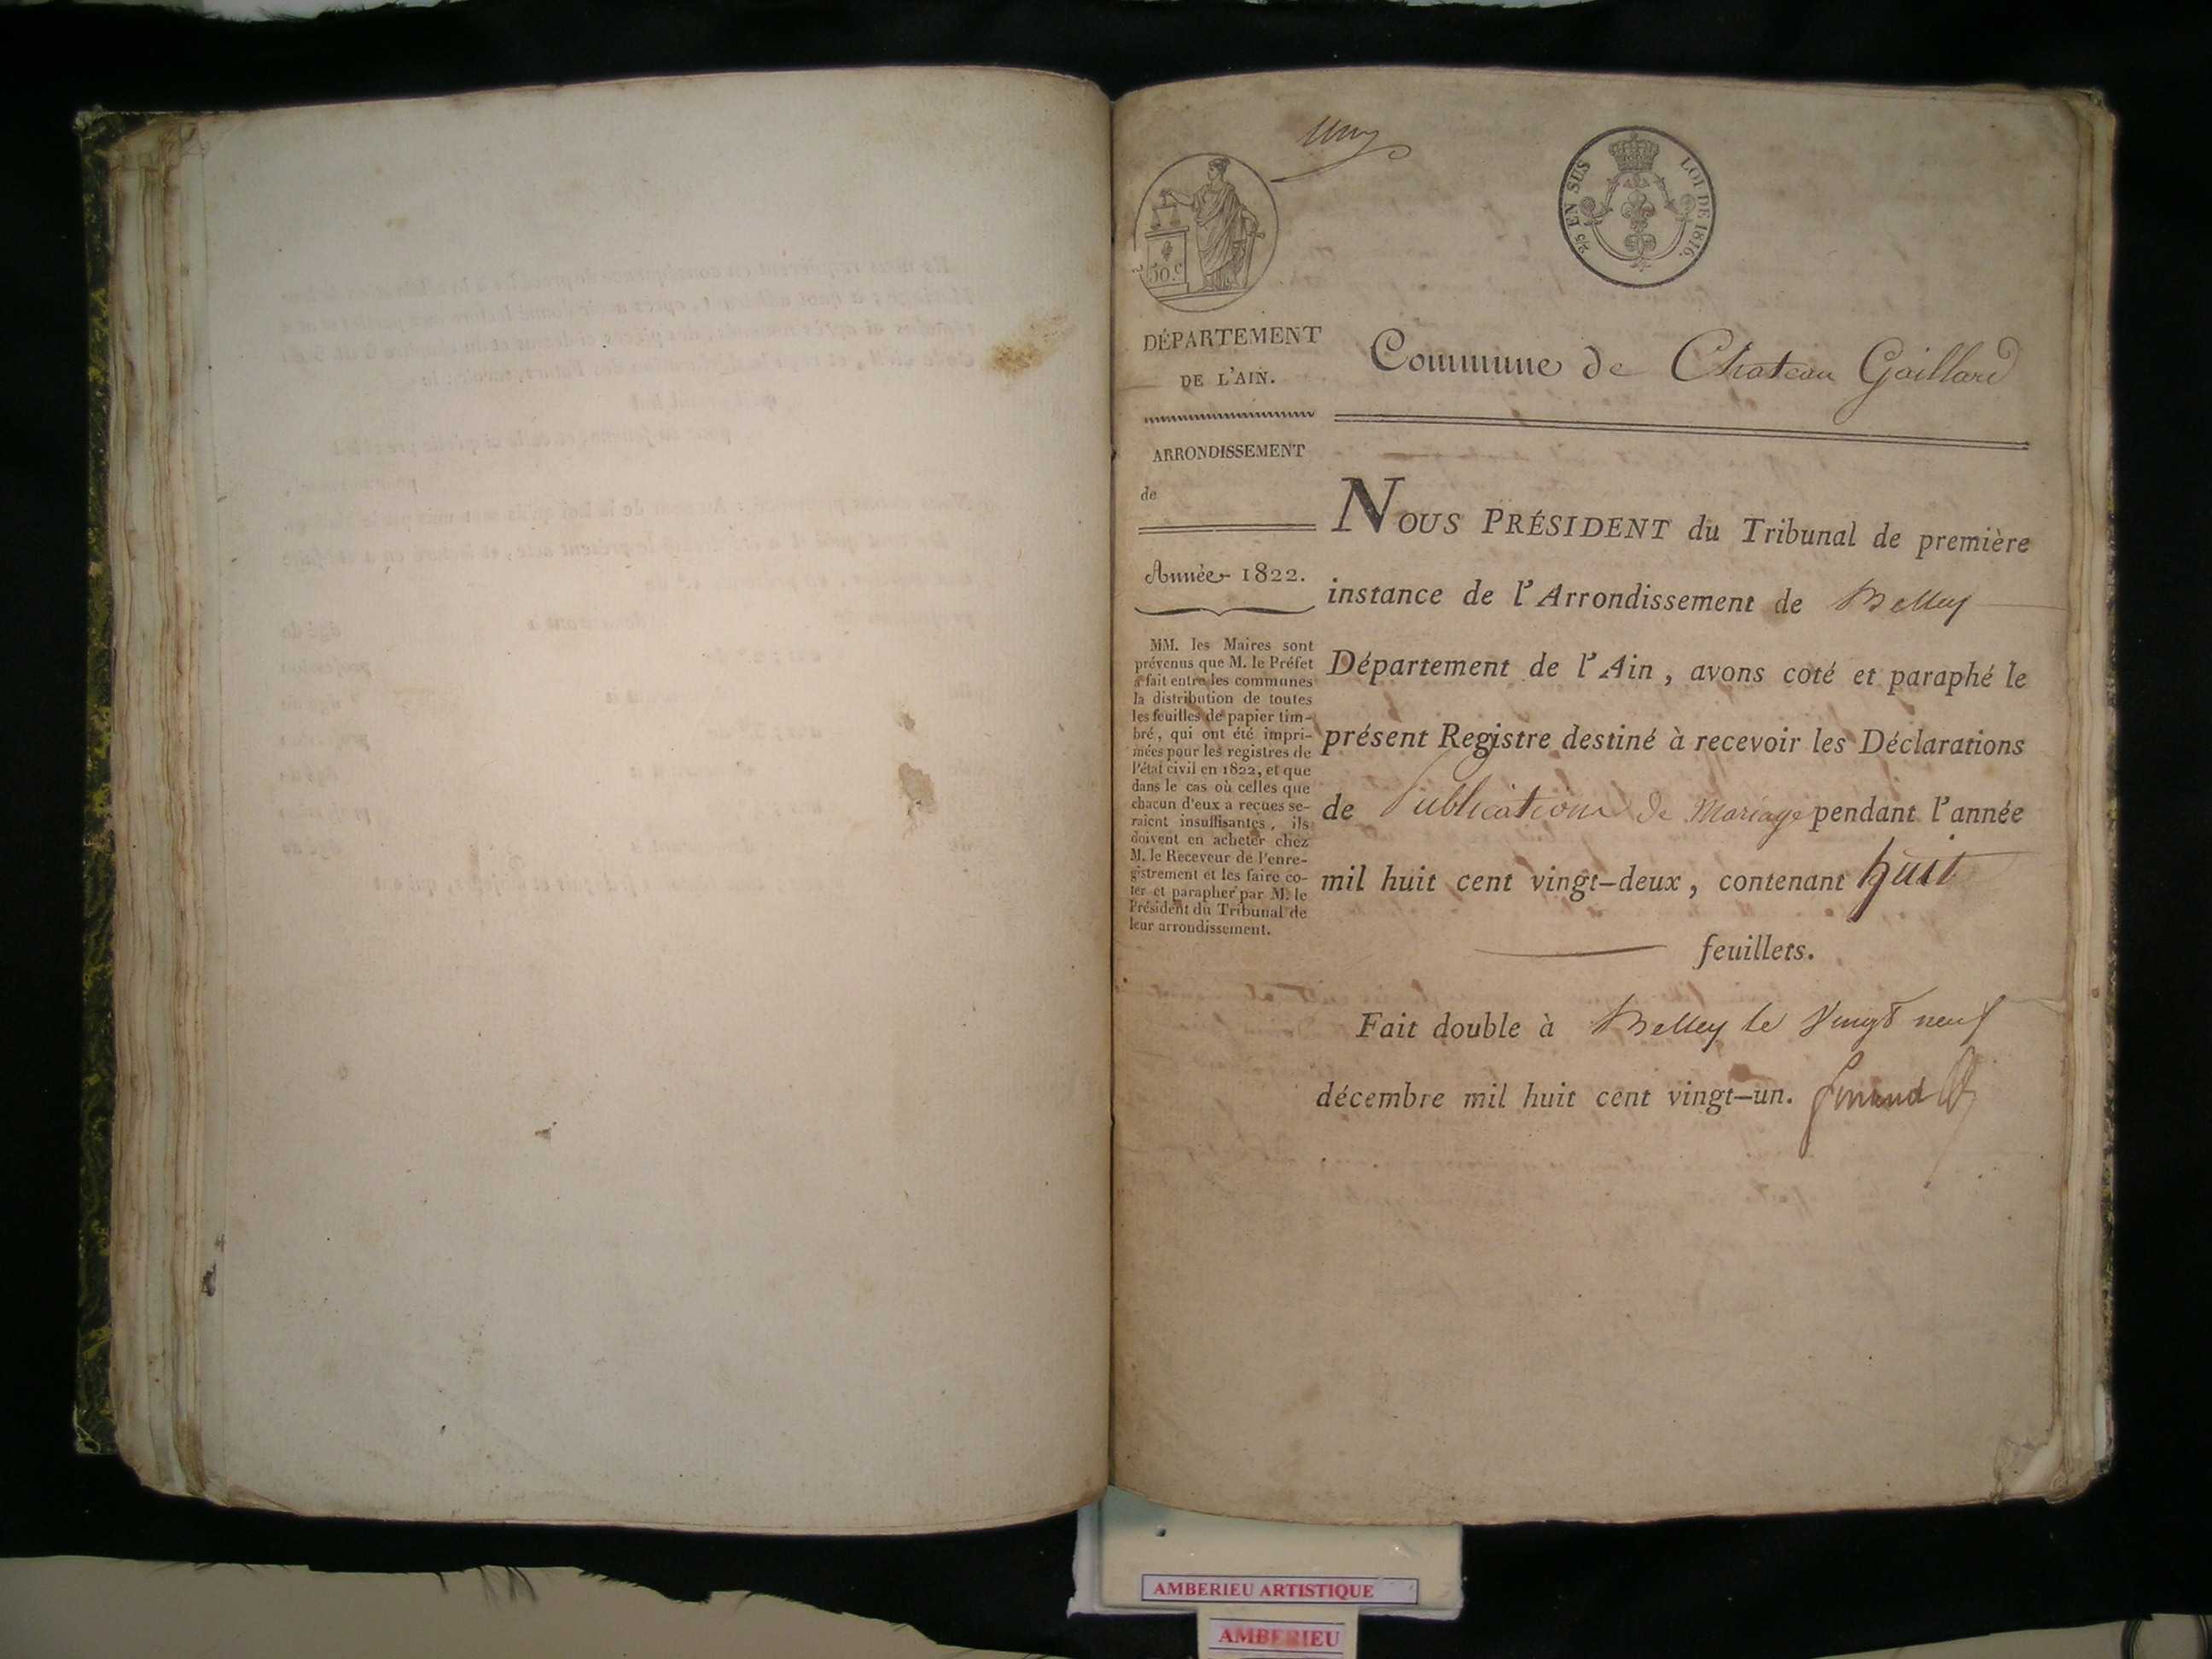 50.c
2/5 EN SUS
LOI DE 1816.
DÉPARTEMENT
DE L'AIN.
Commune de Chateau Gaillard
ARRONDISSEMENT
de
Année 1822.
MM. les Maires sont
prévenus que M. le Préfet
a fait entre les communes
la distribution de toutes
les feuilles de papier tim-
bré, qui ont été impri-
mées pour les registres de
l'état civil en 1822, et que
dans le cas où celles que
chacun d'eux a reçues se-
raient insuffisantes, ils
doivent en acheter chez
M. le Receveur de l'enre-
gistrement et les faire co-
ter et parapher par M. le
Président du Tribunal de
leur arrondissement.
NOUS PRÉSIDENT du Tribunal de première
instance de l'Arrondissement de Belley
Département de l'Ain, avons coté et paraphé le
présent Registre destiné à recevoir les Déclarations
de Publications de Mariage pendant l'année
mil huit cent vingt-deux, contenant huit
feuillets.
Fait double à Belley le Vingt neuf
décembre mil huit cent vingt-un.
AMBERIEU ARTISTIQUE
AMBERIEU